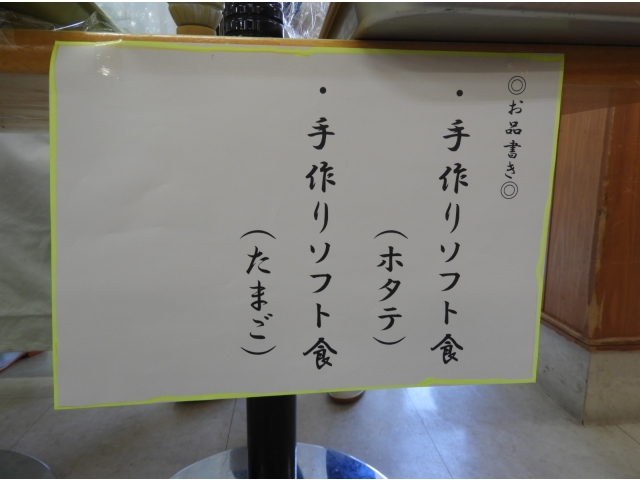 ◎お品書き◎
・手作りソフト食
（ホタテ）
・手作りソフト食
（たまご）